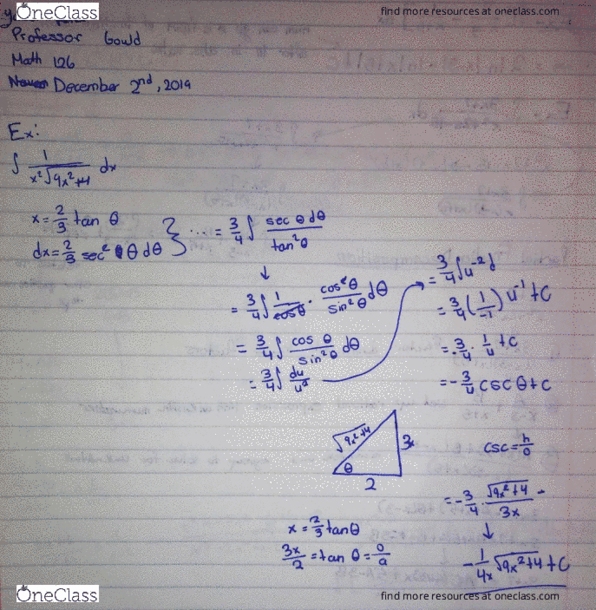 OneClass
find more resources at oneclass.com
Professor Gould
Math 126
December 2nd, 2019
Ex:
∫ 1/(x²√9x²+4) dx
x = 2/3 tan θ
dx = 2/3 sec² θ dθ
} ... = 3/4 ∫ sec θ dθ / tan² θ
↓
= 3/4 ∫ 1/cosθ · cos²θ/sin²θ dθ
= 3/4 ∫ cos θ/sin² θ dθ
= 3/4 ∫ du/u²
= 3/4 ∫ u⁻² d
= 3/4 (1/-1) u⁻¹ + C
= -3/4 · 1/u + C
= -3/4 csc θ + C
√9x²+4
3x
θ
2
csc = h/o
x = 2/3 tan θ
3x/2 = tan θ = o/a
= -3/4 · √9x²+4 / 3x -
↓
-1/4x √9x²+4 + C
OneClass
find more resources at oneclass.com